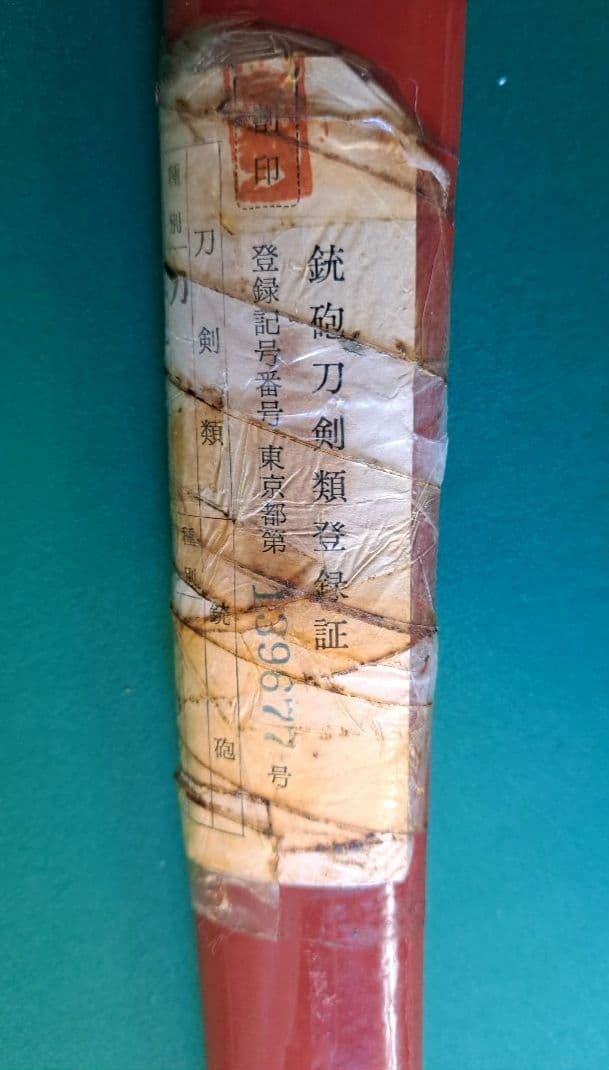 割印
銃砲刀剣類登録証
登録記号番号 東京都第139677号
刀剣類
種別
刀
銃砲
種別